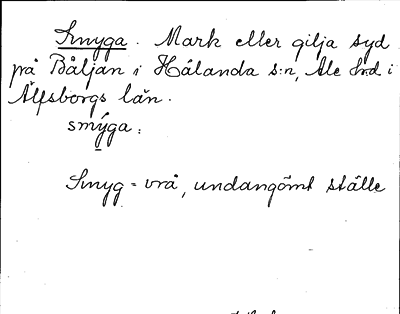 Smyga. Mark eller gilja syd
på Båljan i Hålanda s:n, Ale hrd i
Älfsborgs län.
smýga:
Smyg = vrå, undangömt ställe